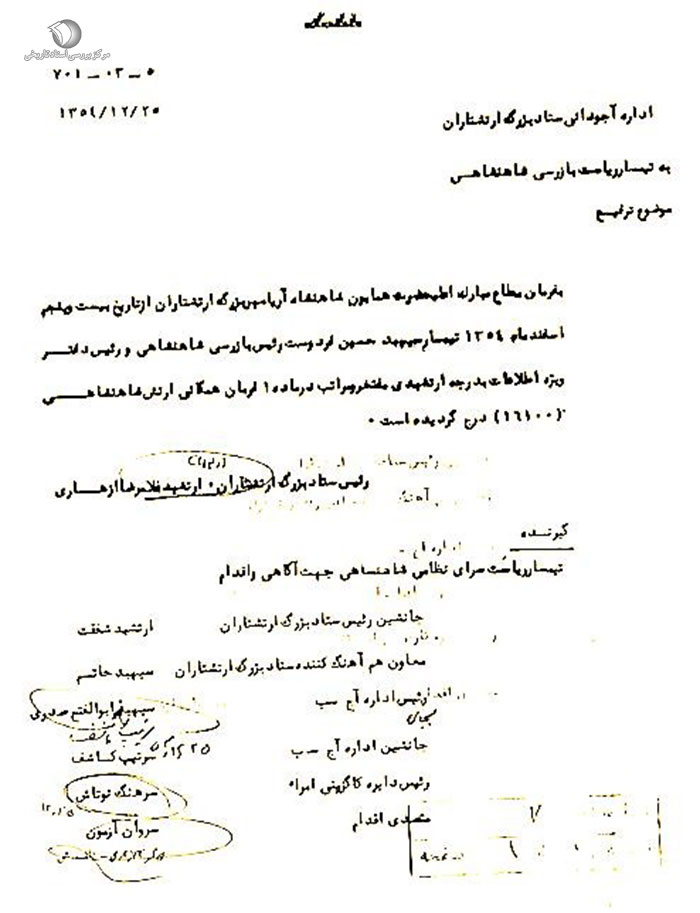 مرکز بررسی اسناد تاریخی
۷۰۱ - ۰۳ - ۵
۱۳۵۴/۱۲/۲۵
اداره آجودانی ستاد بزرگ ارتشتاران
به تیمسار ریاست بازرسی شاهنشاهی
موضوع ترفیع
بفرمان مطاع مبارک اعلیحضرت همایون شاهنشاه آریامهر بزرگ ارتشتاران از تاریخ بیست و پنجم
اسفند ماه ۱۳۵۴ تیمسار سپهبد حسین فردوست رئیس بازرسی شاهنشاهی و رئیس دفتر
ویژه اطلاعات بدرجه ارتشبدی مفتخر و مراتب در ماده ۱ فرمان همگانی ارتش شاهنشاهی
(۱۶۱۰۰) درج گردیده است ۰
رئیس ستاد بزرگ ارتشتاران ۰ ارتشبد غلامرضا ازهاری
گیرنده
تیمسار ریاست سرای نظامی شاهنشاهی جهت آگاهی و اقدام
جانشین رئیس ستاد بزرگ ارتشتاران ارتشبد شفقت
معاون هم آهنگ کننده ستاد بزرگ ارتشتاران سپهبد حاتم
رئیس اداره آج سب سپهبد ابوالفتح صفوی
جانشین اداره آج سب سرتیپ کاشف
رئیس دایره کارگزینی امراء سرهنگ نوتاش
متصدی اقدام سروان آزمون
صفحه